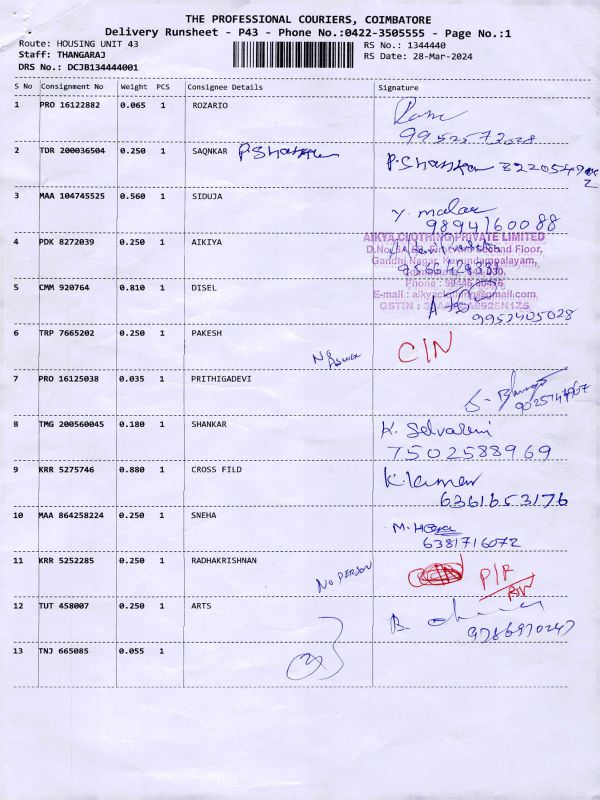 THE PROFESSIONAL COURIERS, COIMBATORE
Delivery Runsheet - P43 - Phone No.:0422-3505555 - Page No.:1
Route: HOUSING UNIT 43
RS No.: 1344440
Staff: THANGARAJ
RS Date: 28-Mar-2024
DRS No.: DCJB134444001
S No Consignment No Weight PCS Consignee Details Signature
1 PRO 16122882 0.065 1 ROZARIO
9952572028
2 TDR 200036504 0.250 1 SAQNKAR P.Shankar P.Shankar
3 MAA 104745525 0.560 1 SIDUJA
Y. malar
9894160088
AIKYA CLOTHING PRIVATE LIMITED
4 PDK 8272039 0.250 1 AIKIYA
Second Floor,
Gandhi Nagar, Kurundampalayam,
5 CMM 920764 0.810 1 DISEL
E-mail : aikyaclothing@gmail.com
GSTIN :
9952405028
6 TRP 7665202 0.250 1 PAKESH
No Answer
C/N
7 PRO 16125038 0.035 1 PRITHIGADEVI
8 TMG 200560045 0.180 1 SHANKAR K. Selvarani
7502588969
9 KRR 5275746 0.880 1 CROSS FILD K.Kumar
6361653176
10 MAA 864258224 0.250 1 SNEHA
6381716072
11 KRR 5252285 0.250 1 RADHAKRISHNAN
NO PERSON
P/R
12 TUT 458007 0.250 1 ARTS B.
9786970247
13 TNJ 665085 0.055 1